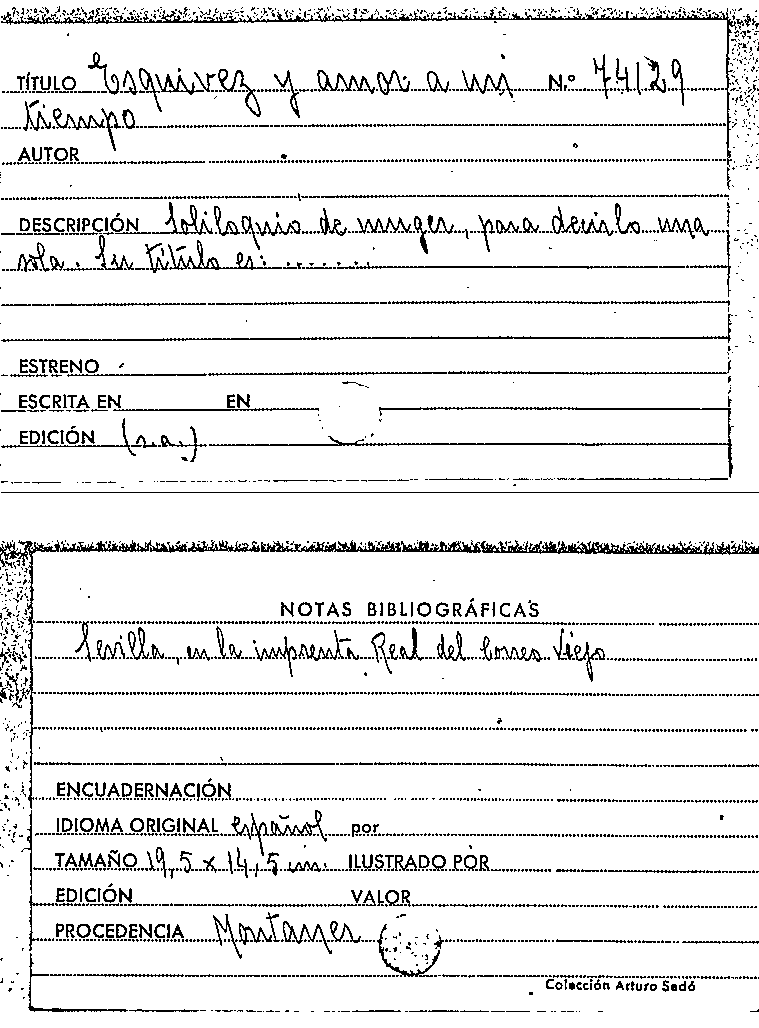 TÍTULO Esquivez y amor a un N.º 74129
tiempo
AUTOR
DESCRIPCIÓN Soliloquio de muger, para decirlo una
sola. Su título es: .......
ESTRENO
ESCRITA EN EN
EDICIÓN (s.a.)
NOTAS BIBLIOGRÁFICAS
Sevilla, en la imprenta Real del Correo Viejo
ENCUADERNACIÓN
IDIOMA ORIGINAL español por
TAMAÑO 19,5 x 14,5 cm. ILUSTRADO POR
EDICIÓN VALOR
PROCEDENCIA Montaner
Colección Arturo Sedó